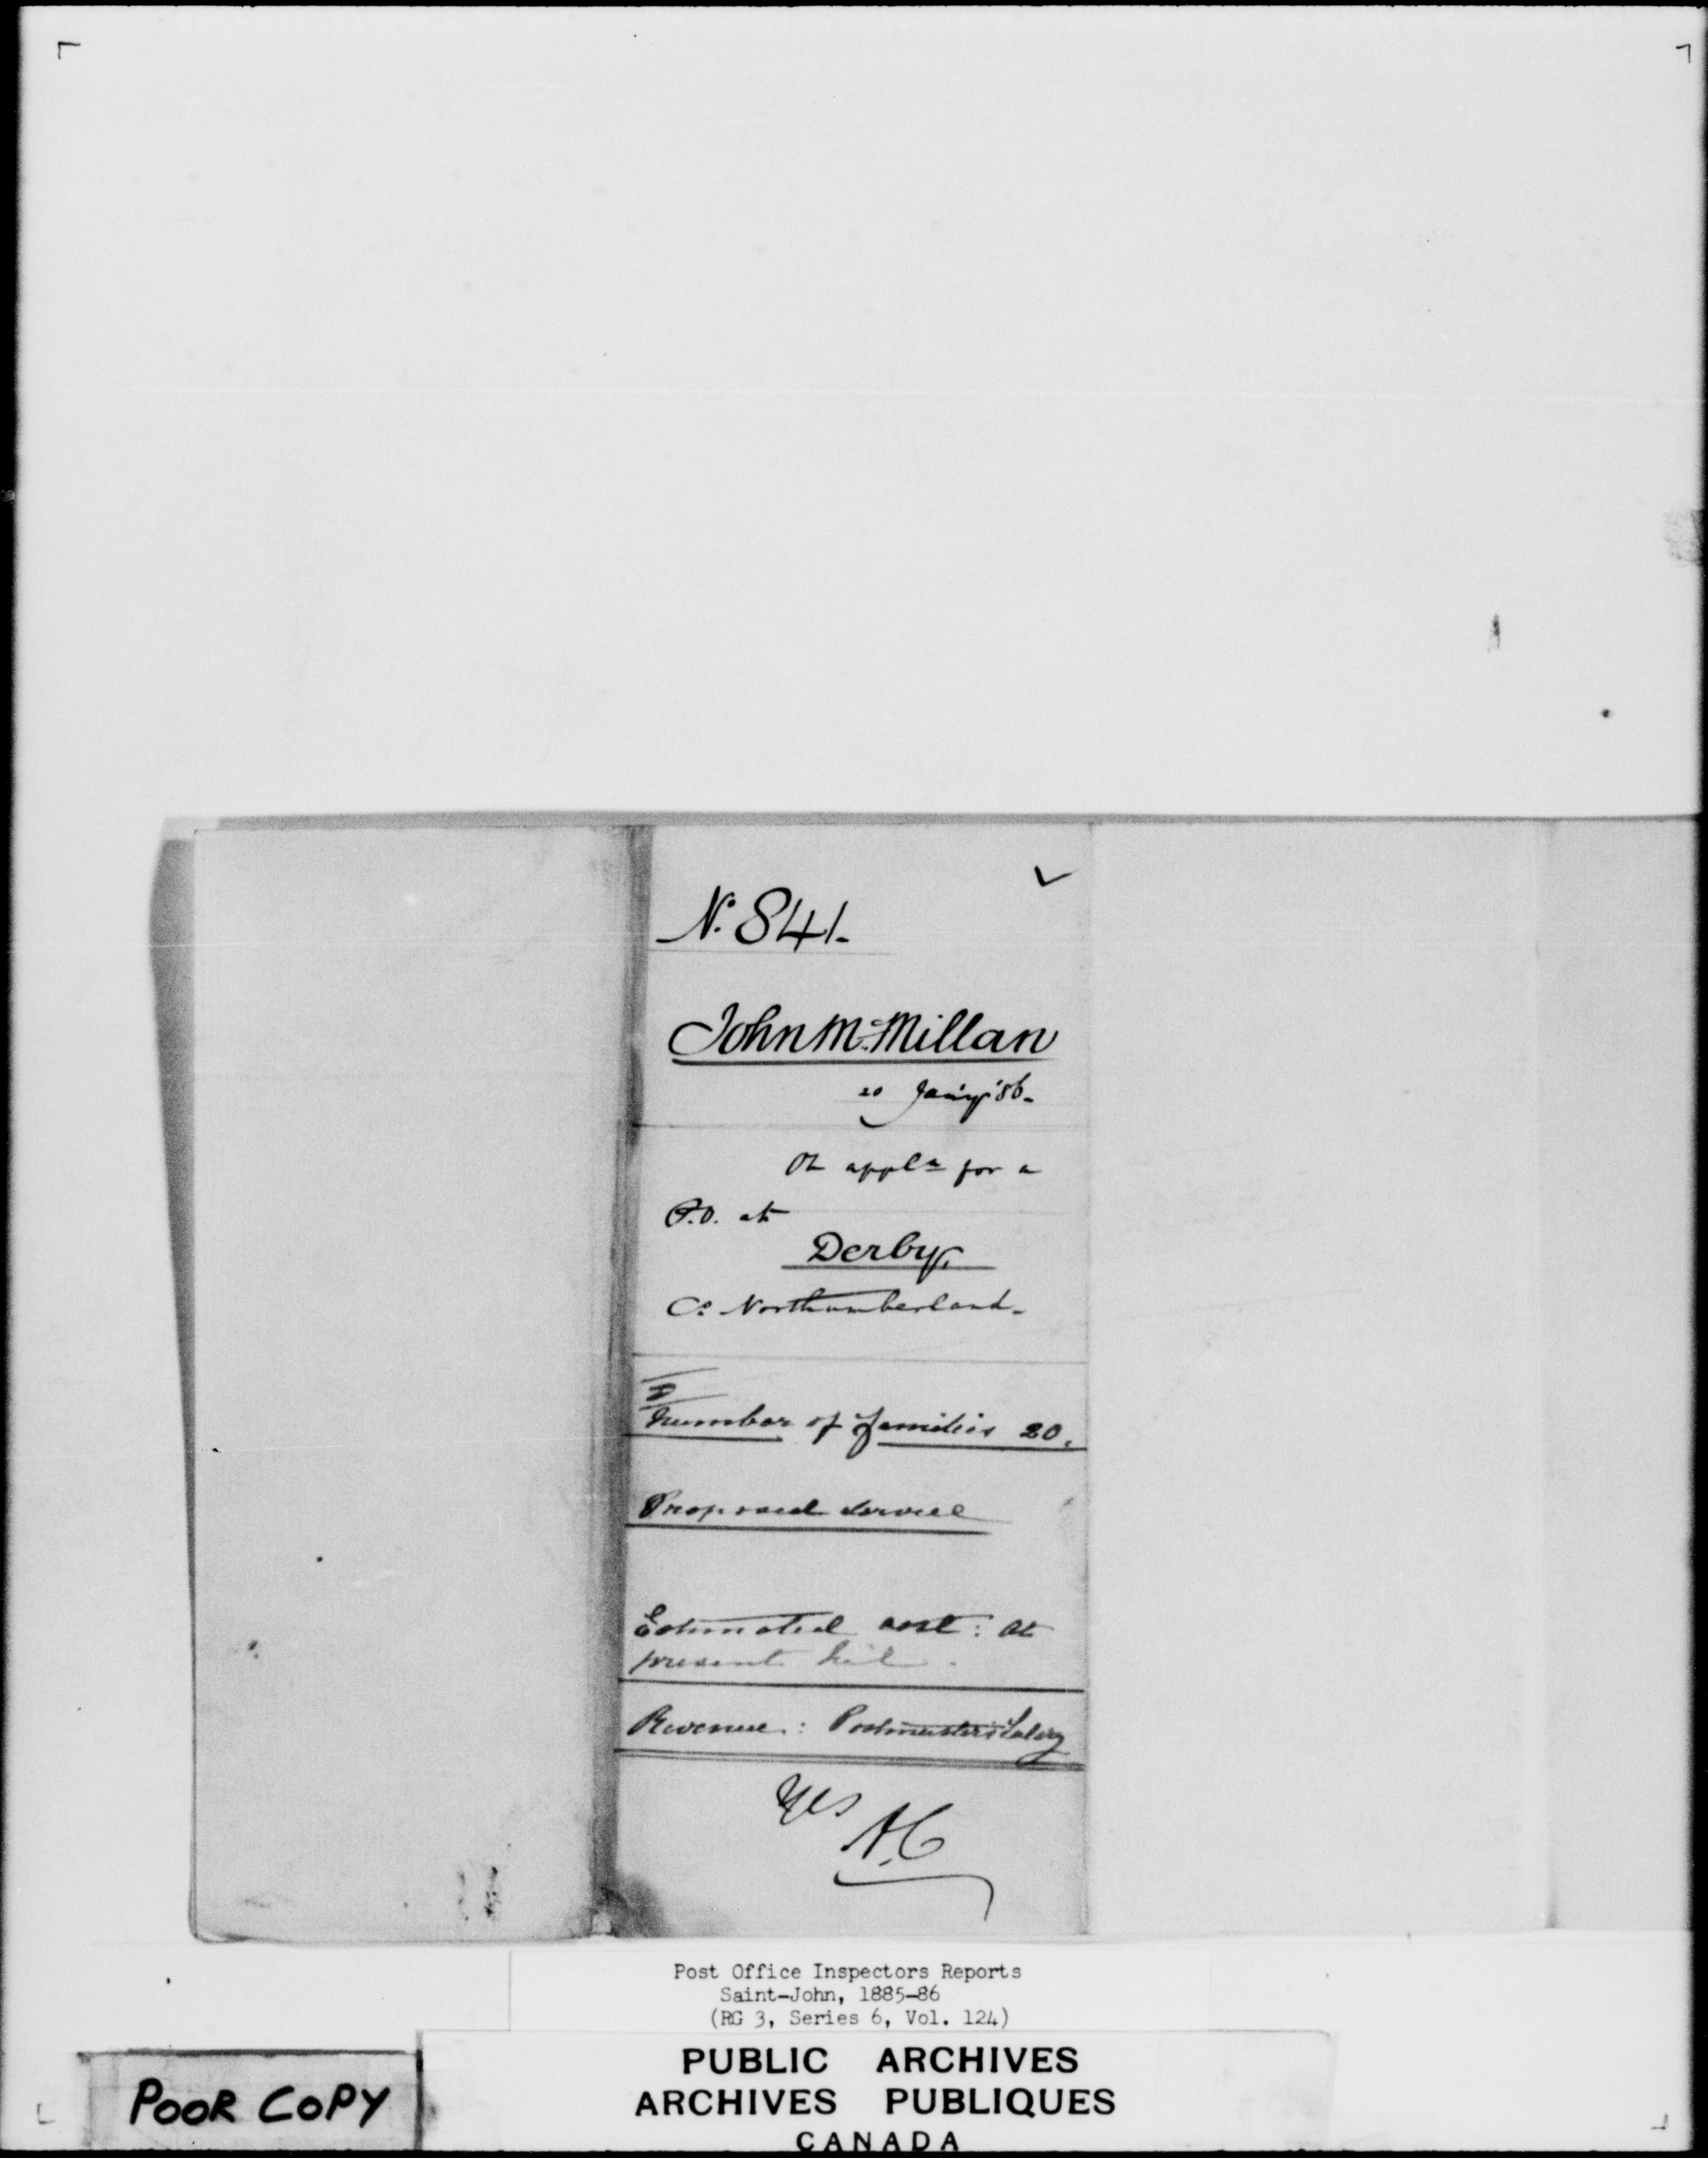 No. 841.
John McMillan
20 Jan'y '86.
On appln for a
P.O. at
Derby,
Co. Northumberland.
Number of families 20.
Proposed service
Estimated cost: at
present nil.
Revenue: Postmaster's Salary
Yes
A.C
Post Office Inspectors Reports
Saint-John, 1885-86
(RG 3, Series 6, Vol. 124)
PUBLIC ARCHIVES
ARCHIVES PUBLIQUES
CANADA
POOR COPY